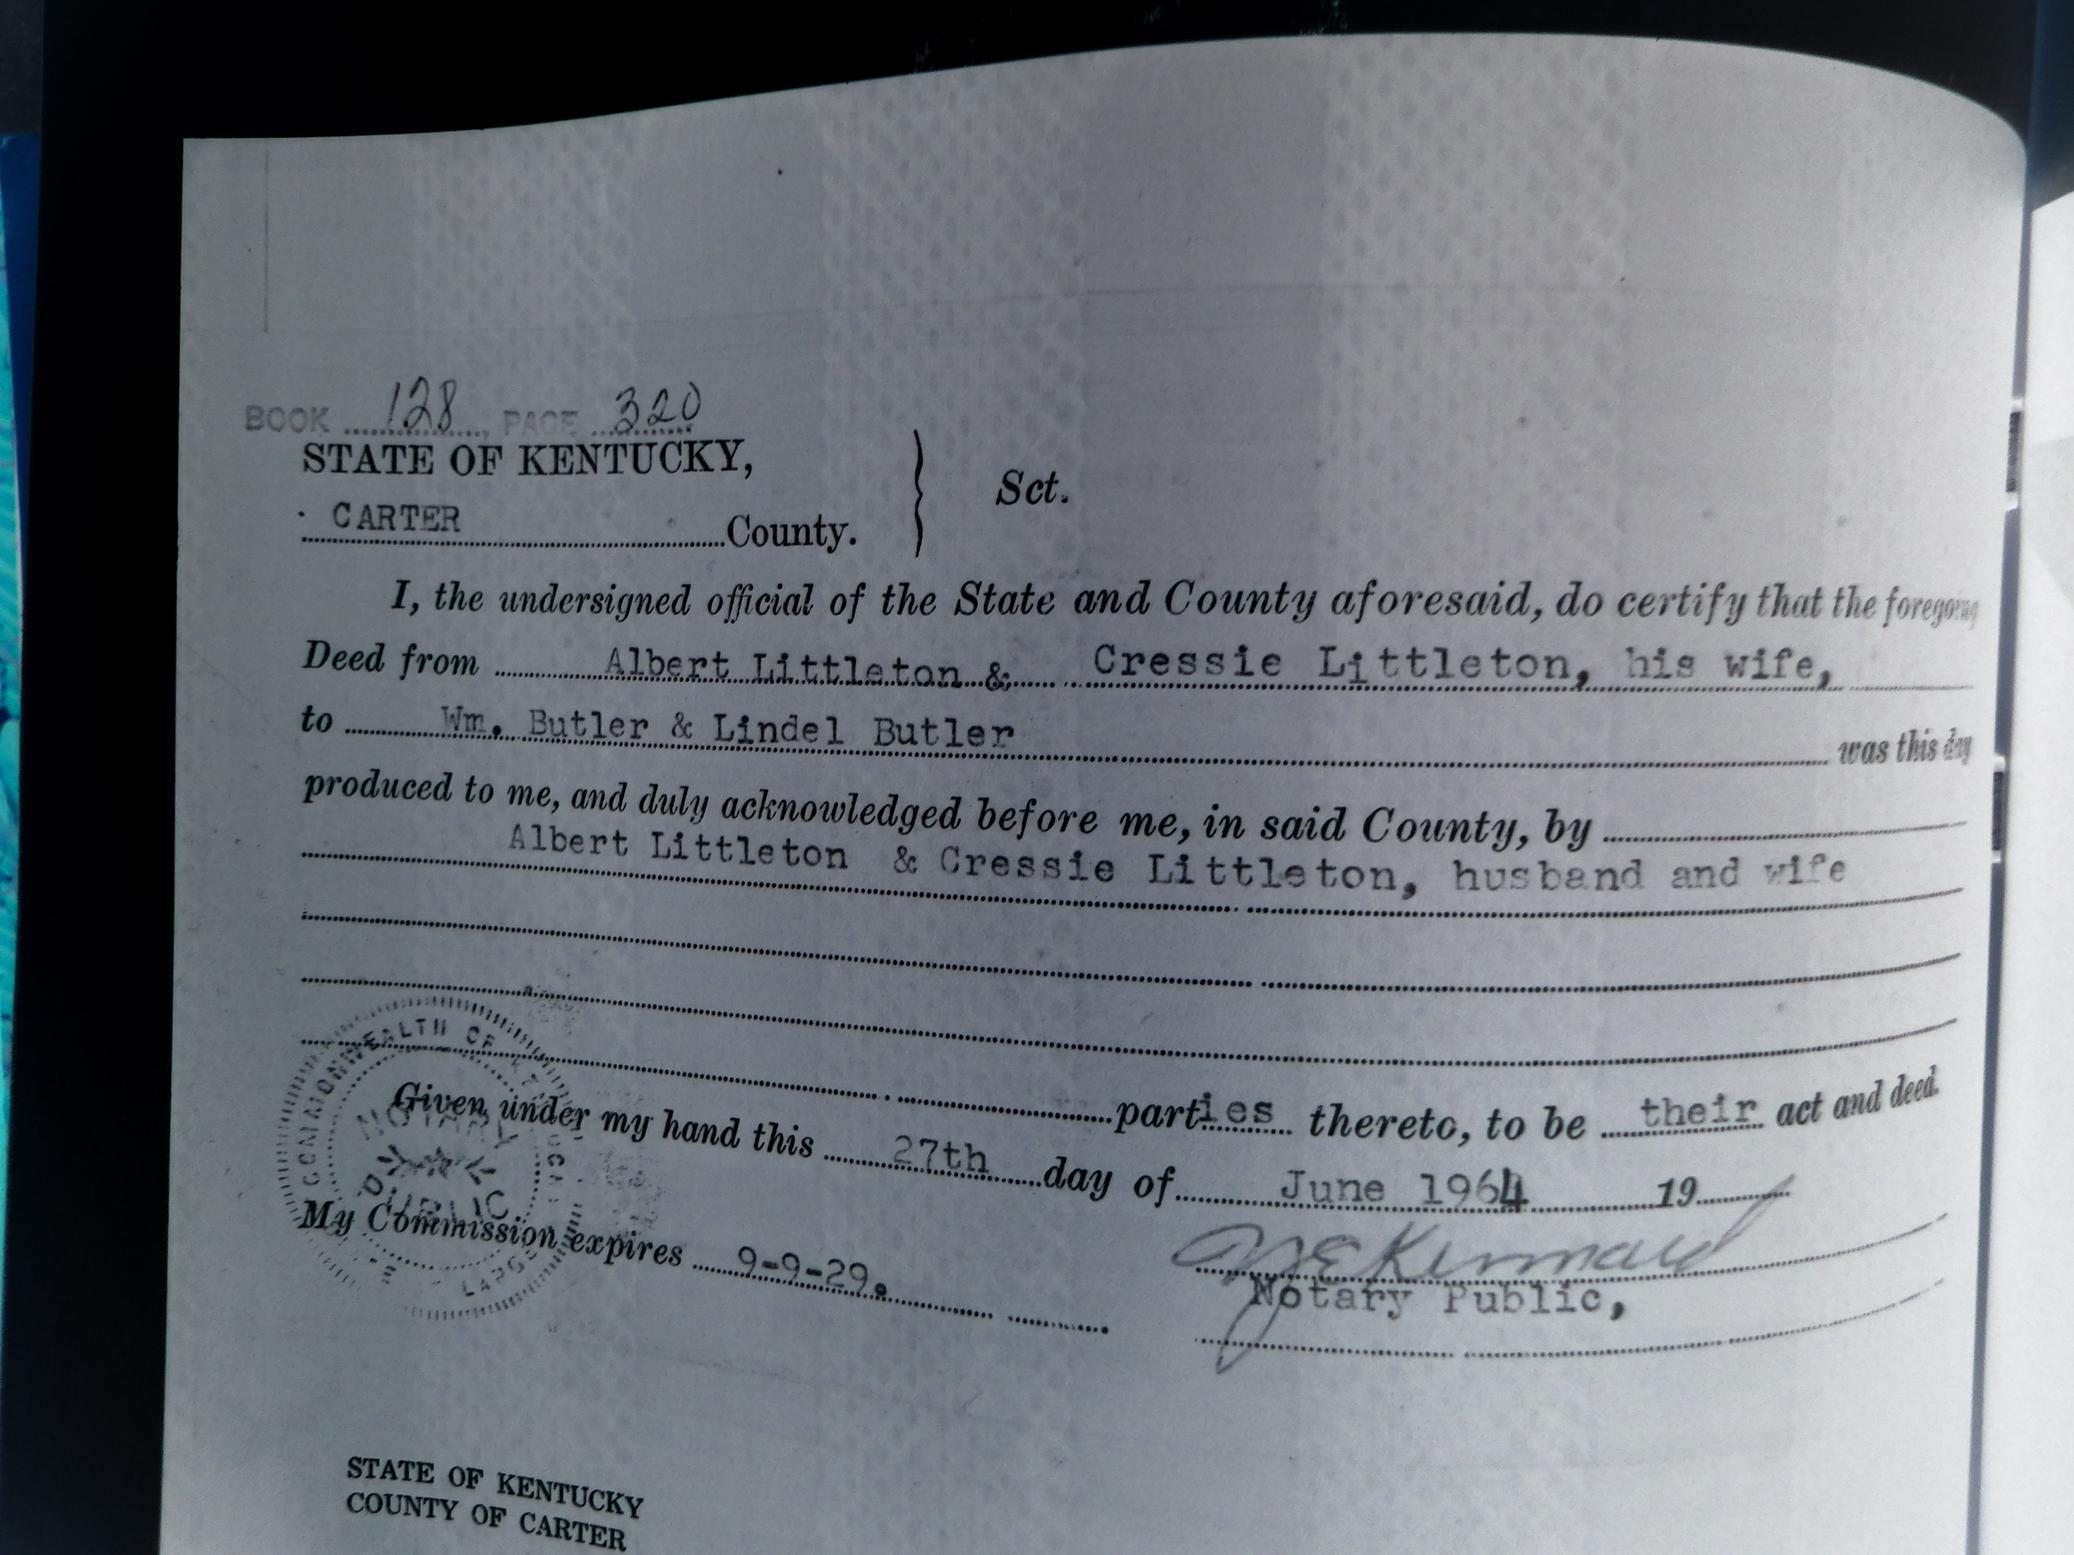 BOOK 128, PAGE 320
STATE OF KENTUCKY,
CARTER County. Sct.
I, the undersigned official of the State and County aforesaid, do certify that the foregoing
Deed from Albert Littleton & Cressie Littleton, his wife,
to Wm. Butler & Lindel Butler was this day
produced to me, and duly acknowledged before me, in said County, by
Albert Littleton & Cressie Littleton, husband and wife
parties thereto, to be their act and deed.
Given under my hand this 27th day of June 1964 19
My Commission expires 9-9-29.
Notary Public,
COMMONWEALTH OF
NOTARY
PUBLIC
LARGE
STATE OF KENTUCKY
COUNTY OF CARTER